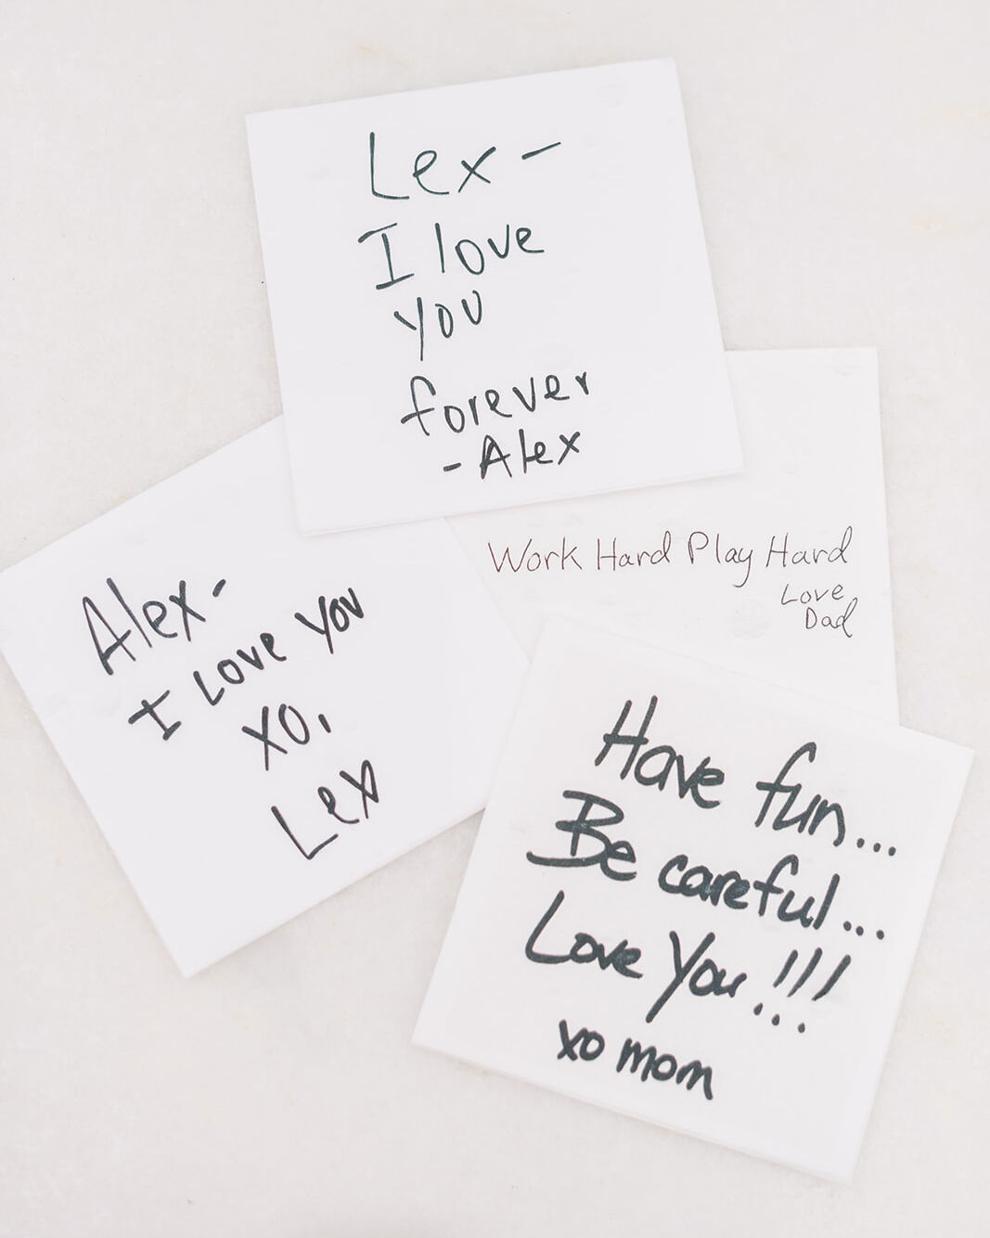 Lex-
I love
you
forever
-Alex
Work Hard Play Hard
Love
Dad
Alex-
I Love You
XO,
Lex
Have fun...
Be careful...
Love You!!!
xo mom